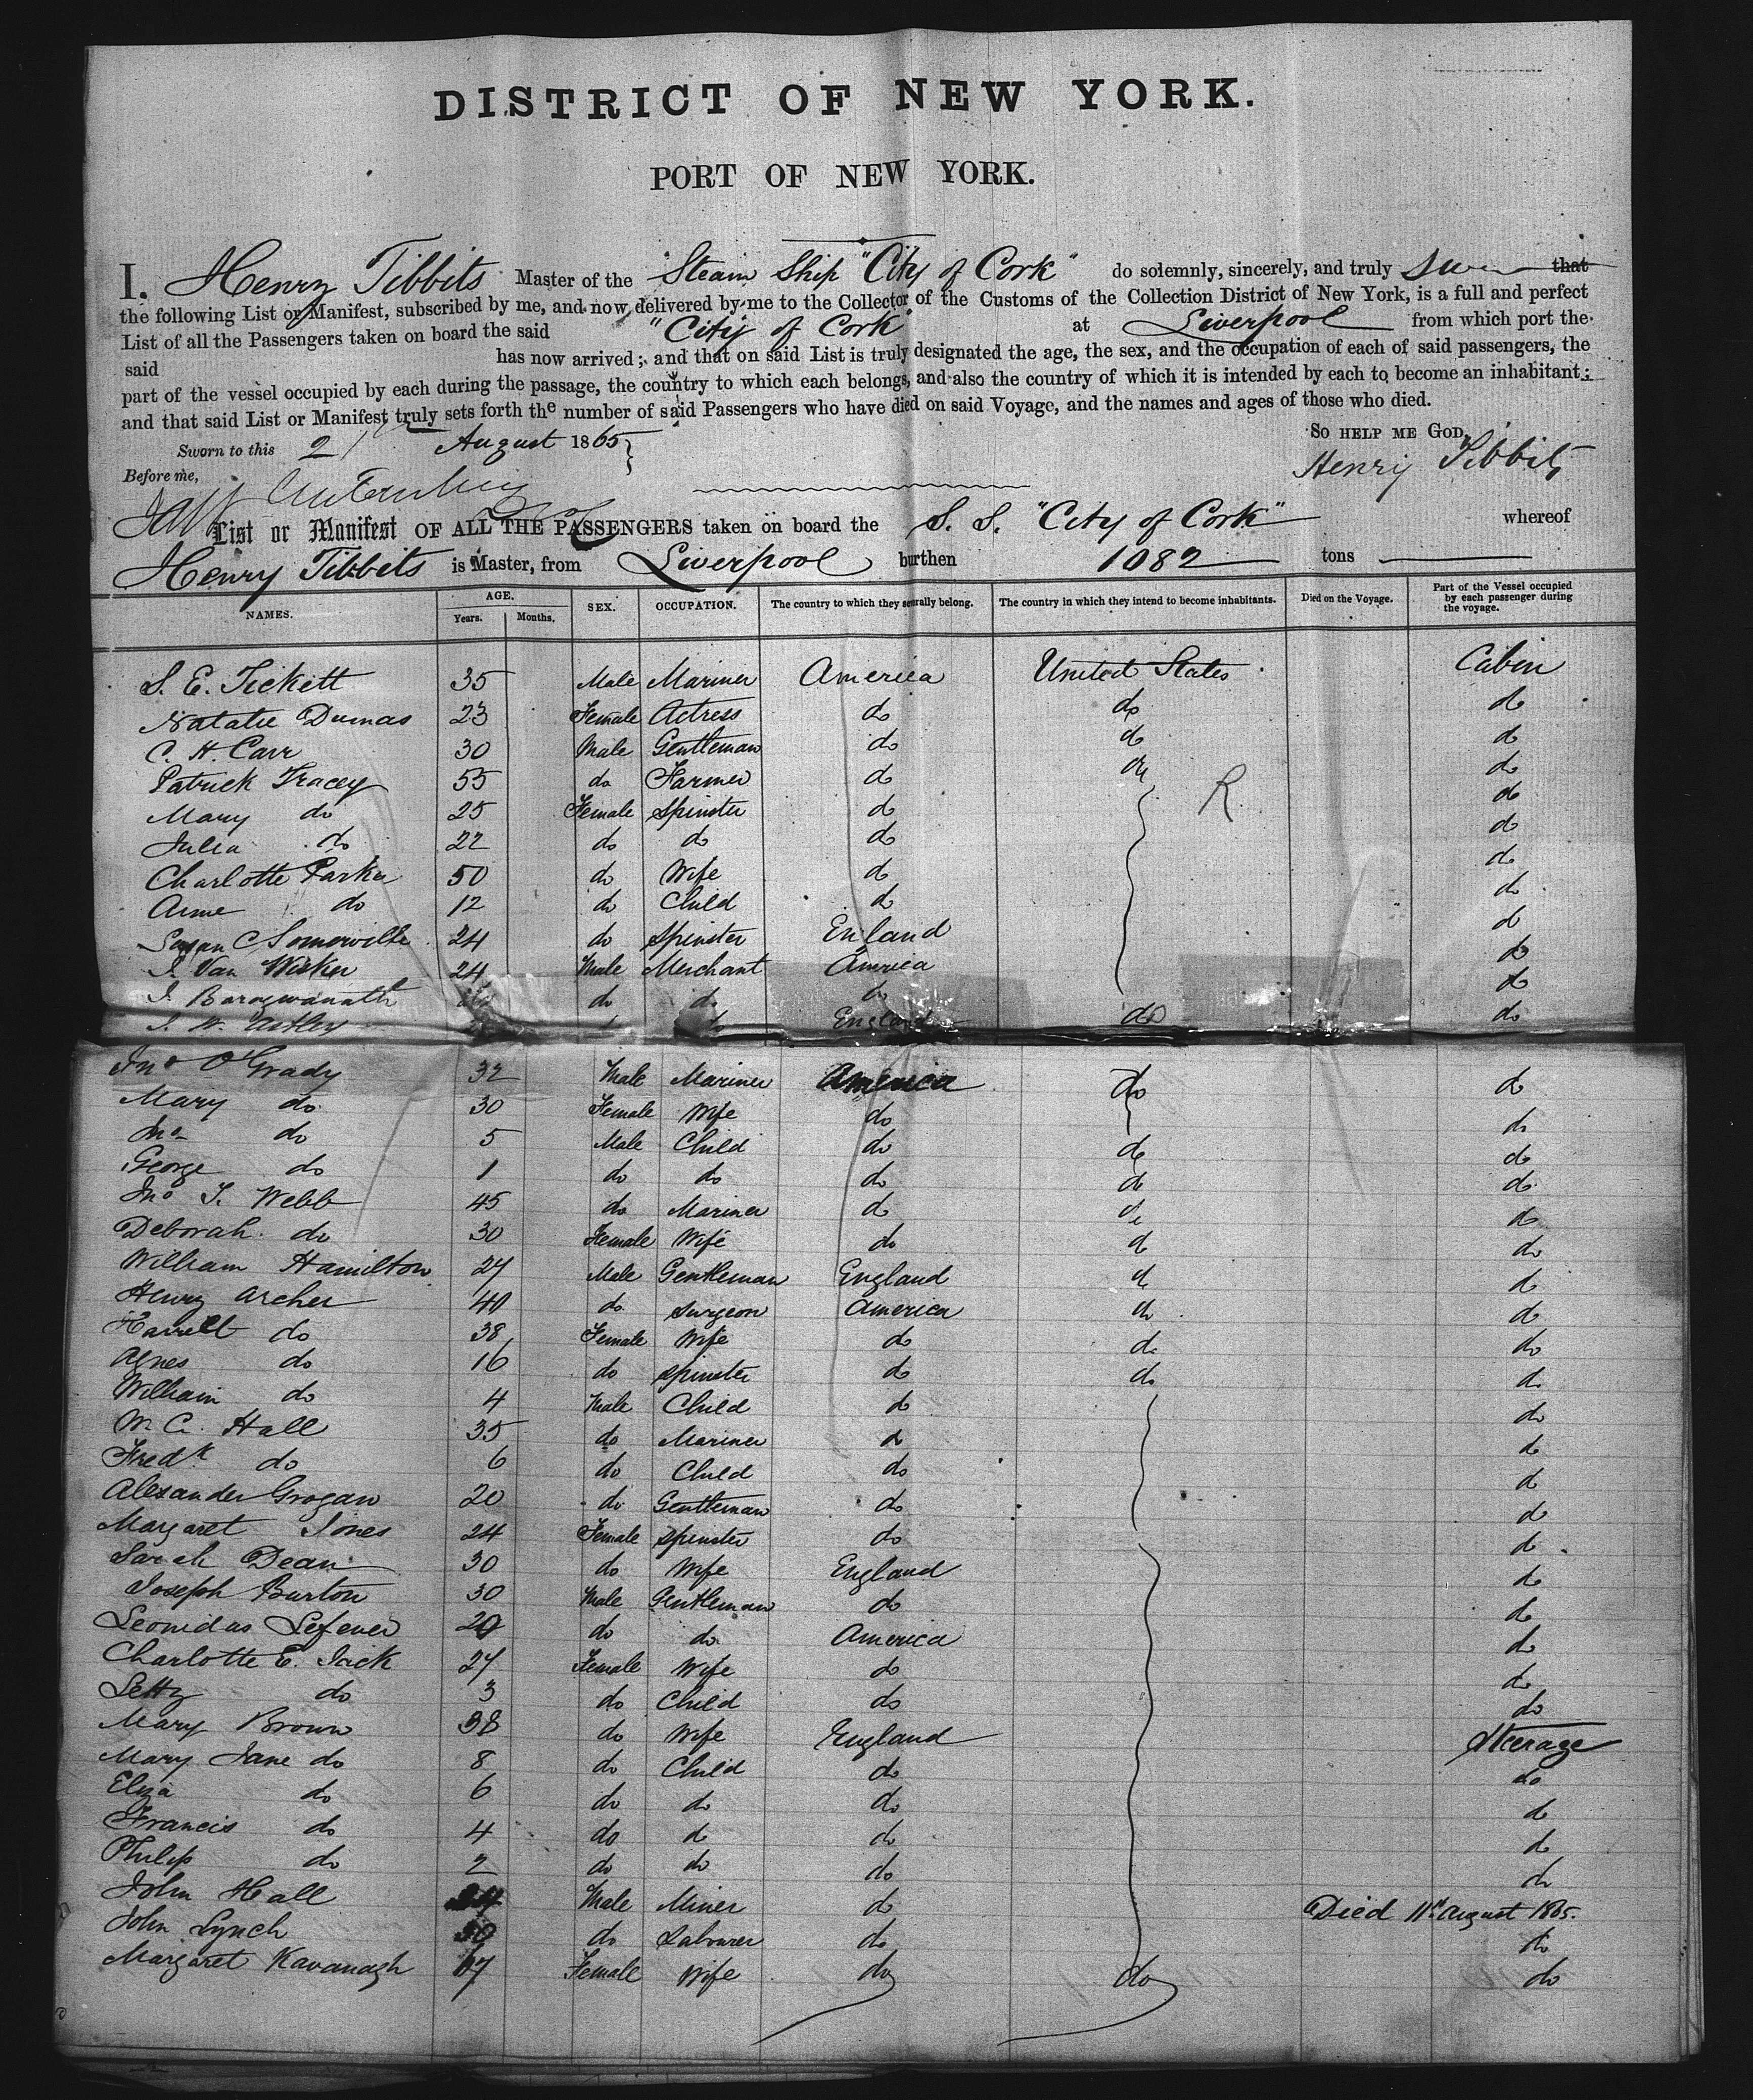 DISTRICT OF NEW YORK.
PORT OF NEW YORK.
I. Henry Tibbits Master of the Steam Ship "City of Cork" do solemnly, sincerely, and truly that
the following List or Manifest, subscribed by me, and now delivered by me to the Collector of the Customs of the Collection District of New York, is a full and perfect
List of all the Passengers taken on board the said "City of Cork" at Liverpool from which port the
said has now arrived; and that on said List is truly designated the age, the sex, and the occupation of each of said passengers, the
part of the vessel occupied by each during the passage, the country to which each belongs, and also the country of which it is intended by each to become an inhabitant;
and that said List or Manifest truly sets forth the number of said Passengers who have died on said Voyage, and the names and ages of those who died.
SO HELP ME GOD,
Sworn to this 21 August 1865
Henry Tibbits
Before me,
List or Manifest OF ALL THE PASSENGERS taken on board the S. S. "City of Cork" whereof
Henry Tibbits is Master, from Liverpool burthen 1082 tons
NAMES. AGE. Years. Months. SEX. OCCUPATION. The country to which they severally belong. The country in which they intend to become inhabitants. Died on the Voyage. Part of the Vessel occupied by each passenger during the voyage.
S. E. Tickett 35 Male Mariner America United States Cabin
Natalie Dumas 23 Female Actress do do do
C. H. Carr 30 Male Gentleman do do do
Patrick Tracey 55 do Farmer do do do
Mary do 25 Female Spinster do R do
Julia do 22 do do do do
Charlotte Parker 50 do Wife do do
Anne do 12 do Child do do
Susan C Somerville 24 do Spinster England do
J. Van Wisker 24 Male Merchant America do
J. Baragwanath do do do do
J. W. Astley do England do do
Jno O'Grady 32 Male Mariner America do do
Mary do 30 Female Wife do do
Jno do 5 Male Child do do do
George do 1 do do do do do
Jno T. Webb 45 do Mariner do do do
Deborah do 30 Female Wife do do do
William Hamilton 27 Male Gentleman England do do
Henry Archer 40 do Surgeon America do do
Harriett do 38 Female Wife do do do
Agnes do 16 do Spinster do do do
William do 4 Male Child do do
W. C. Hall 35 do Mariner do do
Fredk do 6 do Child do do
Alexander Grogan 20 do Gentleman do do
Margaret Jones 24 Female Spinster do do
Sarah Dean 30 do Wife England do
Joseph Burton 30 Male Gentleman do do
Leonidas Lefever 29 do do America do
Charlotte E. Jack 27 Female Wife do do
Letty do 3 do Child do do
Mary Brown 38 do Wife England Steerage
Mary Jane do 8 do Child do do
Eliza do 6 do do do do
Francis do 4 do do do do
Philip do 2 do do do do
John Hall Male Miner do Died 11th August 1865.
John Lynch 30 do Labourer do do
Margaret Kavanagh 67 Female Wife do do do